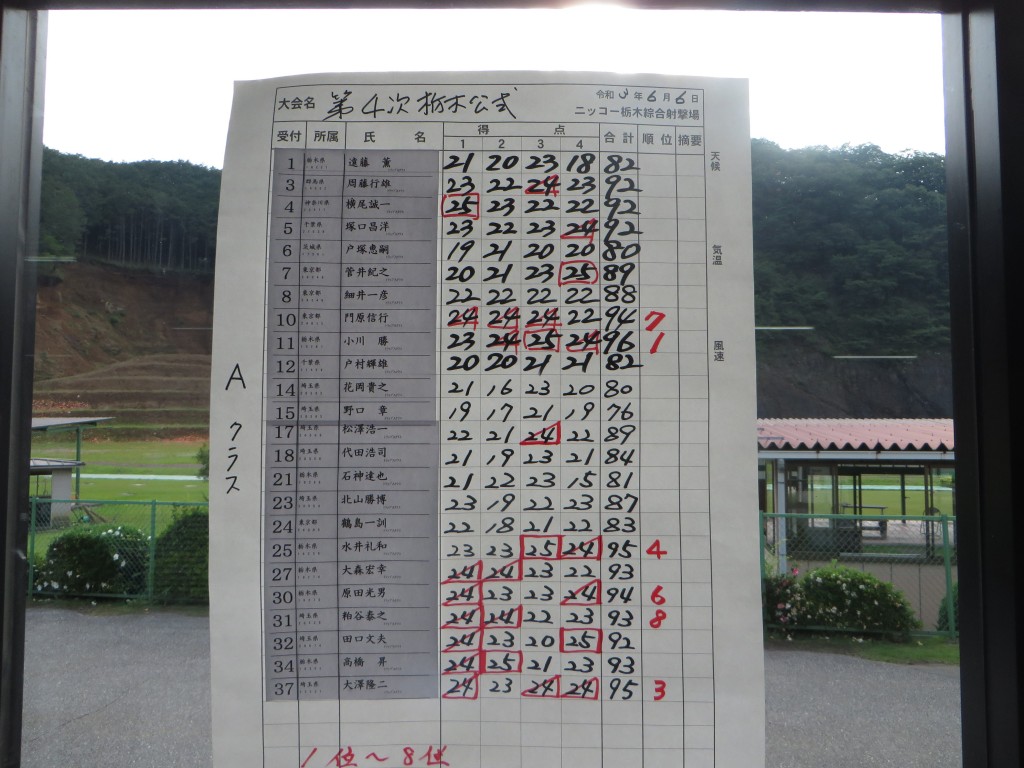 大会名 第4次栃木公式 令和3年6月6日
ニッコー栃木綜合射撃場
受付 所属 氏 名 得 点 合計 順位 摘要
1 2 3 4
1 栃木県 遠藤 薫 21 20 23 18 82
3 群馬県 周藤行雄 23 22 24 23 92
4 神奈川県 横尾誠一 25 23 22 22 92
5 千葉県 塚口昌洋 23 22 23 24 92
6 茨城県 戸塚惠嗣 19 21 20 20 80
7 東京都 菅井紀之 20 21 23 25 89
8 東京都 細井一彦 22 22 22 22 88
10 東京都 門原信行 24 24 24 22 94 7
11 栃木県 小川 勝 23 24 25 24 96 1
12 千葉県 戸村輝雄 20 20 21 21 82
14 埼玉県 花岡貴之 21 16 23 20 80
15 埼玉県 野口 章 19 17 21 19 76
17 埼玉県 松澤浩一 22 21 24 22 89
18 埼玉県 代田浩司 21 19 23 21 84
21 栃木県 石神達也 21 22 23 15 81
23 埼玉県 北山勝博 23 19 22 23 87
24 東京都 鶴島一訓 22 18 21 22 83
25 栃木県 水井礼和 23 23 25 24 95 4
27 栃木県 大森宏幸 24 24 23 22 93
30 栃木県 原田光男 24 23 23 24 94 6
31 埼玉県 粕谷泰之 24 24 22 23 93 8
32 埼玉県 田口文夫 24 23 20 25 92
34 栃木県 高橋 昇 24 25 21 23 93
37 埼玉県 大澤隆二 24 23 24 24 95 3
1位～8位
Aクラス
天候
気温
風速